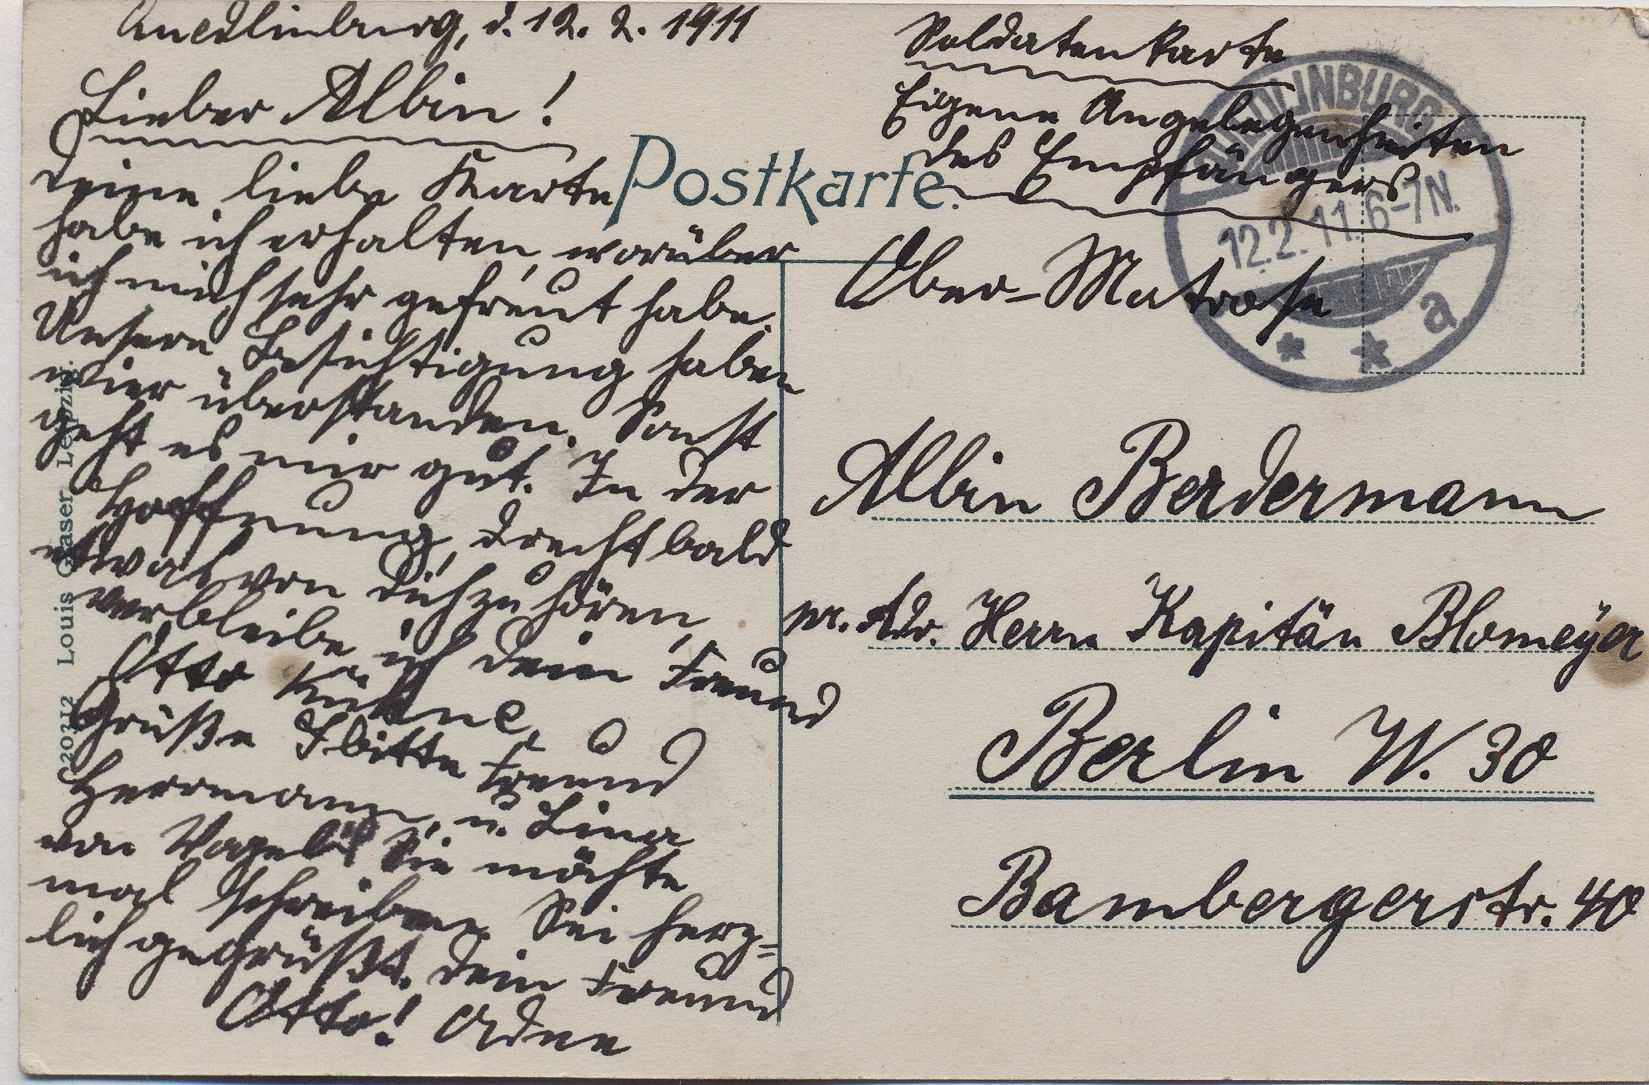 Quedlinburg, d. 12. 2. 1911
Lieber Albin!
Deine liebe Karte
habe ich erhalten, worüber
ich mich sehr gefreut habe.
Unsere Besichtigung haben
wier überstanden. Sonst
geht es mir gut. In der
Hoffnung, drecht bald
etwas von Dich zu hören,
verbleibe ich dein Freund
Otto Kühne
Grüße bitte Freund
Herrmann, u. Lina
von Sie möchte
mal schreiben. Sei herz-
lich gegrüßt. Dein Freund
Otto! Adee
Postkarte.
Soldatenkarte
Eigene Angelegenheiten
des Empfängers
QUEDLINBURG
12.2.11.6-7N.
* * a
Ober-Matrose
Albin Berdermann
pr. Adr. Herrn Kapitän Blomeyer
Berlin W. 30
Bambergerstr. 40
20312 Louis Glaser, Leipzig.